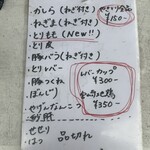 かしら (ねぎ付き)
ねぎま (ねぎ付き)
とりもも (New!!)
とり皮
豚バラ (ねぎ付き)
とりレバー
豚つくね
ぼんじり
やげんなんこつ
砂肝
せせり
はつ
品切れ
￥150
レバーカップ
￥300
￥350